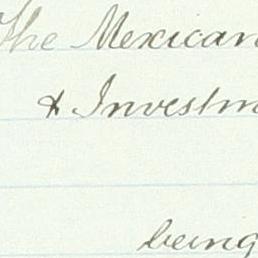 The Mexican
& Investm
being